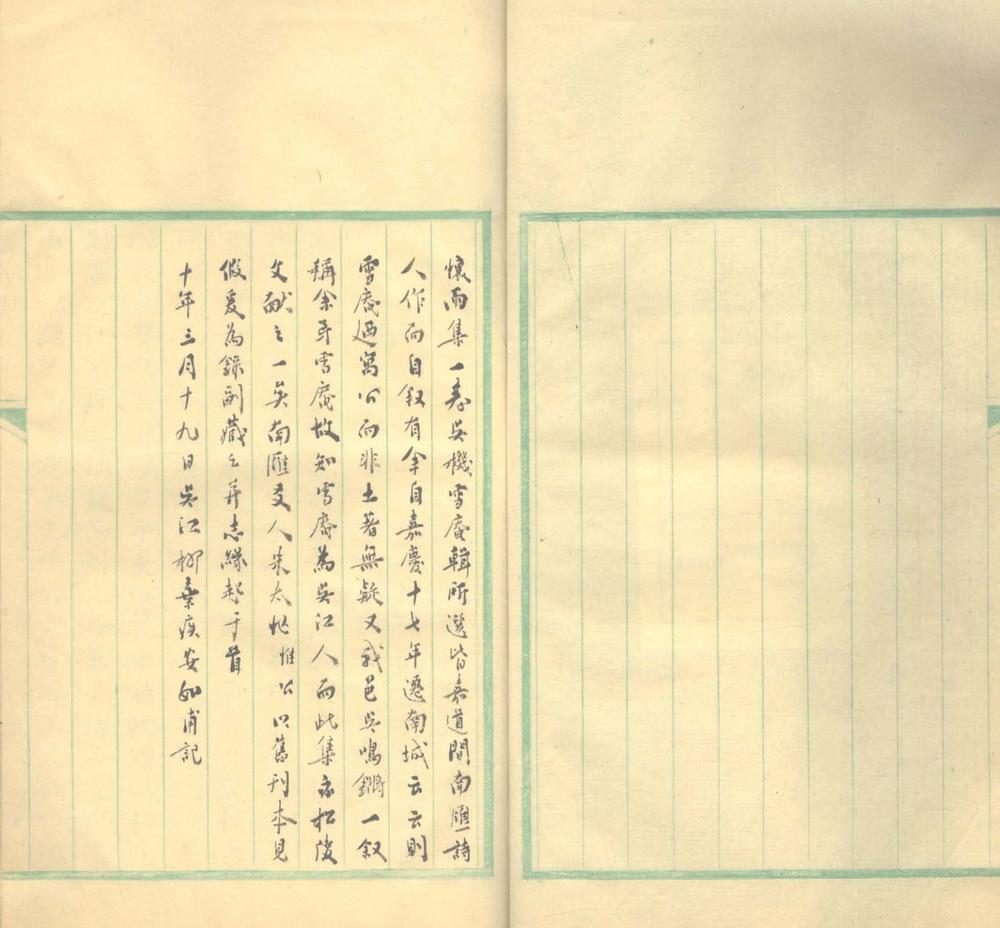 懷雨集一卷吳機雪庵輯所選皆嘉道間南匯詩
人作而自敘有余自嘉慶十七年遷南城云云則
雪庵迺寓公而非土著無疑又我邑吳鳴鏘一敘
稱余哥雪庵故知雪庵為吳江人而此集亦松陵
文獻之一矣南匯友人朱太忙惟公以舊刊本見
假爰為錄副藏之并志緣起于首
十年三月十九日吳江柳棄疾安如甫記